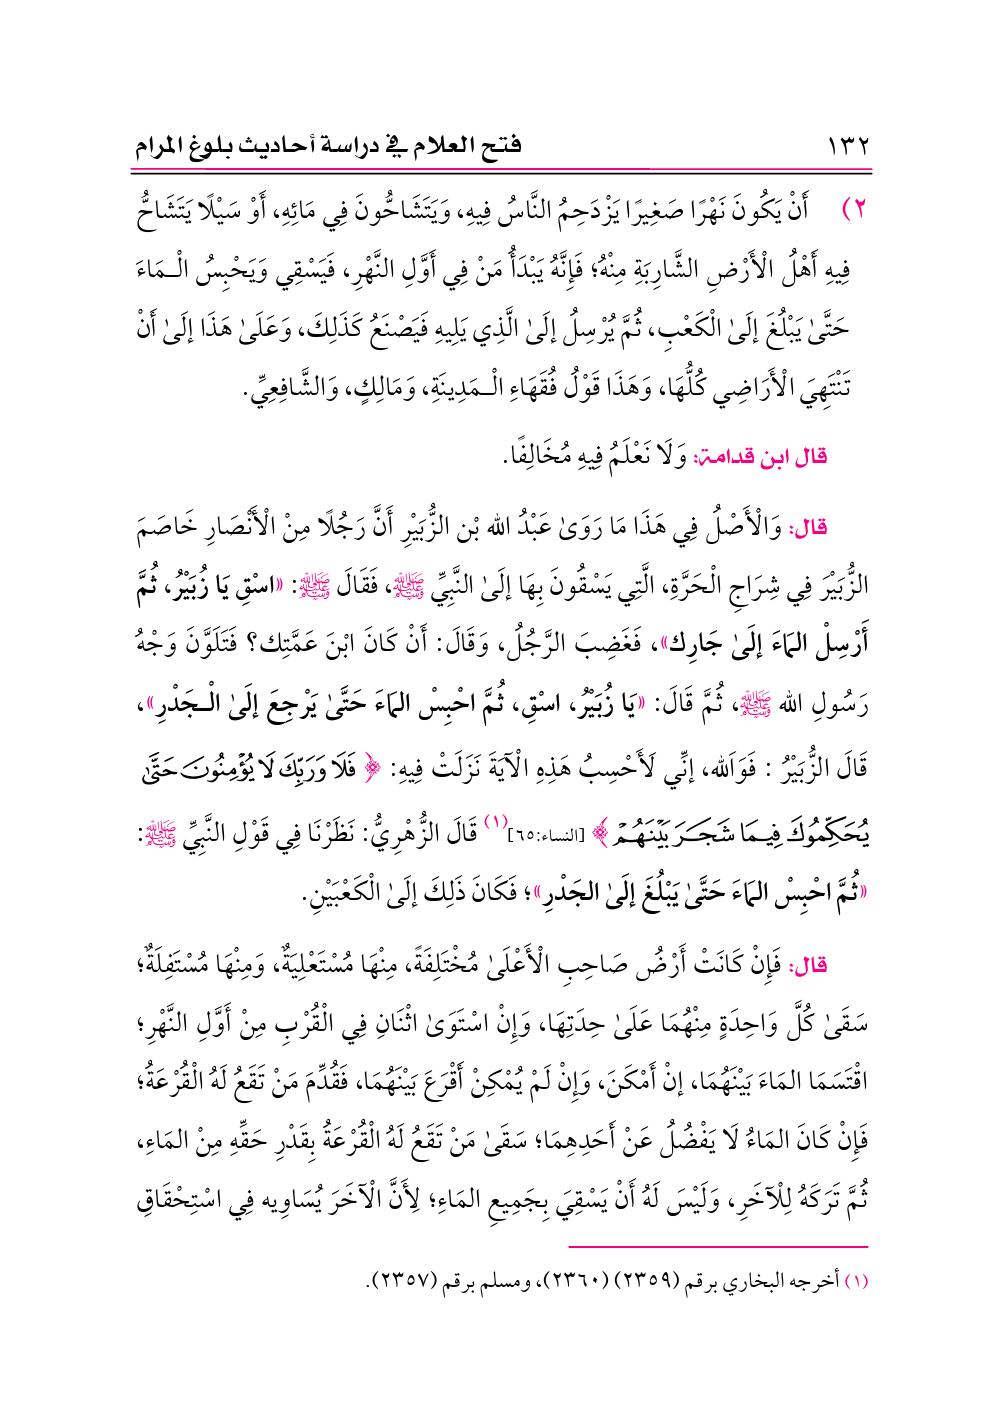 ١٣٢ فتح العلام في دراسة أحاديث بلوغ المرام
٢) أَنْ يَكُونَ نَهْرًا صَغِيرًا يَزْدَحِمُ النَّاسُ فِيهِ، وَيَتَشَاحُّونَ فِي مَائِهِ، أَوْ سَيْلًا يَتَشَاحُّ
فِيهِ أَهْلُ الْأَرْضِ الشَّارِبَةِ مِنْهُ؛ فَإِنَّهُ يَبْدَأُ مَنْ فِي أَوَّلِ النَّهْرِ، فَيَسْقِي وَيَحْبِسُ الْـمَاءَ
حَتَّىٰ يَبْلُغَ إلَىٰ الْكَعْبِ، ثُمَّ يُرْسِلُ إلَىٰ الَّذِي يَلِيهِ فَيَصْنَعُ كَذَلِكَ، وَعَلَىٰ هَذَا إلَىٰ أَنْ
تَنْتَهِيَ الْأَرَاضِي كُلُّهَا، وَهَذَا قَوْلُ فُقَهَاءِ الْـمَدِينَةِ، وَمَالِكٍ، وَالشَّافِعِيِّ.
قال ابن قدامة: وَلَا نَعْلَمُ فِيهِ مُخَالِفًا.
قال: وَالْأَصْلُ فِي هَذَا مَا رَوَىٰ عَبْدُ الله بْن الزُّبَيْرِ أَنَّ رَجُلًا مِنْ الْأَنْصَارِ خَاصَمَ
الزُّبَيْرَ فِي شِرَاجِ الْحَرَّةِ، الَّتِي يَسْقُونَ بِهَا إلَىٰ النَّبِيِّ ﷺ، فَقَالَ ﷺ: «اسْقِ يَا زُبَيْرُ، ثُمَّ
أَرْسِلْ المَاءَ إلَىٰ جَارِك»، فَغَضِبَ الرَّجُلُ، وَقَالَ: أَنْ كَانَ ابْنَ عَمَّتِك؟ فَتَلَوَّنَ وَجْهُ
رَسُولِ الله ﷺ، ثُمَّ قَالَ: «يَا زُبَيْرُ، اسْقِ، ثُمَّ احْبِسْ المَاءَ حَتَّىٰ يَرْجِعَ إلَىٰ الْـجَدْرِ»،
قَالَ الزُّبَيْرُ : فَوَالله، إنِّي لَأَحْسِبُ هَذِهِ الْآيَةَ نَزَلَتْ فِيهِ: ﴿ فَلَا وَرَبِّكَ لَا يُؤْمِنُونَ حَتَّىٰ
يُحَكِّمُوكَ فِيمَا شَجَرَ بَيْنَهُمْ ﴾ [النساء:٦٥](١) قَالَ الزُّهْرِيُّ: نَظَرْنَا فِي قَوْلِ النَّبِيِّ ﷺ:
«ثُمَّ احْبِسْ المَاءَ حَتَّىٰ يَبْلُغَ إلَىٰ الجَدْرِ»؛ فَكَانَ ذَلِكَ إلَىٰ الْكَعْبَيْنِ.
قال: فَإِنْ كَانَتْ أَرْضُ صَاحِبِ الْأَعْلَىٰ مُخْتَلِفَةً، مِنْهَا مُسْتَعْلِيَةٌ، وَمِنْهَا مُسْتَفِلَةٌ؛
سَقَىٰ كُلَّ وَاحِدَةٍ مِنْهُمَا عَلَىٰ حِدَتِهَا، وَإِنْ اسْتَوَىٰ اثْنَانِ فِي الْقُرْبِ مِنْ أَوَّلِ النَّهْرِ؛
اقْتَسَمَا المَاءَ بَيْنَهُمَا، إنْ أَمْكَنَ، وَإِنْ لَمْ يُمْكِنْ أَقْرَعَ بَيْنَهُمَا، فَقُدِّمَ مَنْ تَقَعُ لَهُ الْقُرْعَةُ؛
فَإِنْ كَانَ المَاءُ لَا يَفْضُلُ عَنْ أَحَدِهِمَا؛ سَقَىٰ مَنْ تَقَعُ لَهُ الْقُرْعَةُ بِقَدْرِ حَقِّهِ مِنْ المَاءِ،
ثُمَّ تَرَكَهُ لِلْآخَرِ، وَلَيْسَ لَهُ أَنْ يَسْقِيَ بِجَمِيعِ المَاءِ؛ لِأَنَّ الْآخَرَ يُسَاوِيه فِي اسْتِحْقَاقِ
(١) أخرجه البخاري برقم (٢٣٥٩) (٢٣٦٠)، ومسلم برقم (٢٣٥٧).